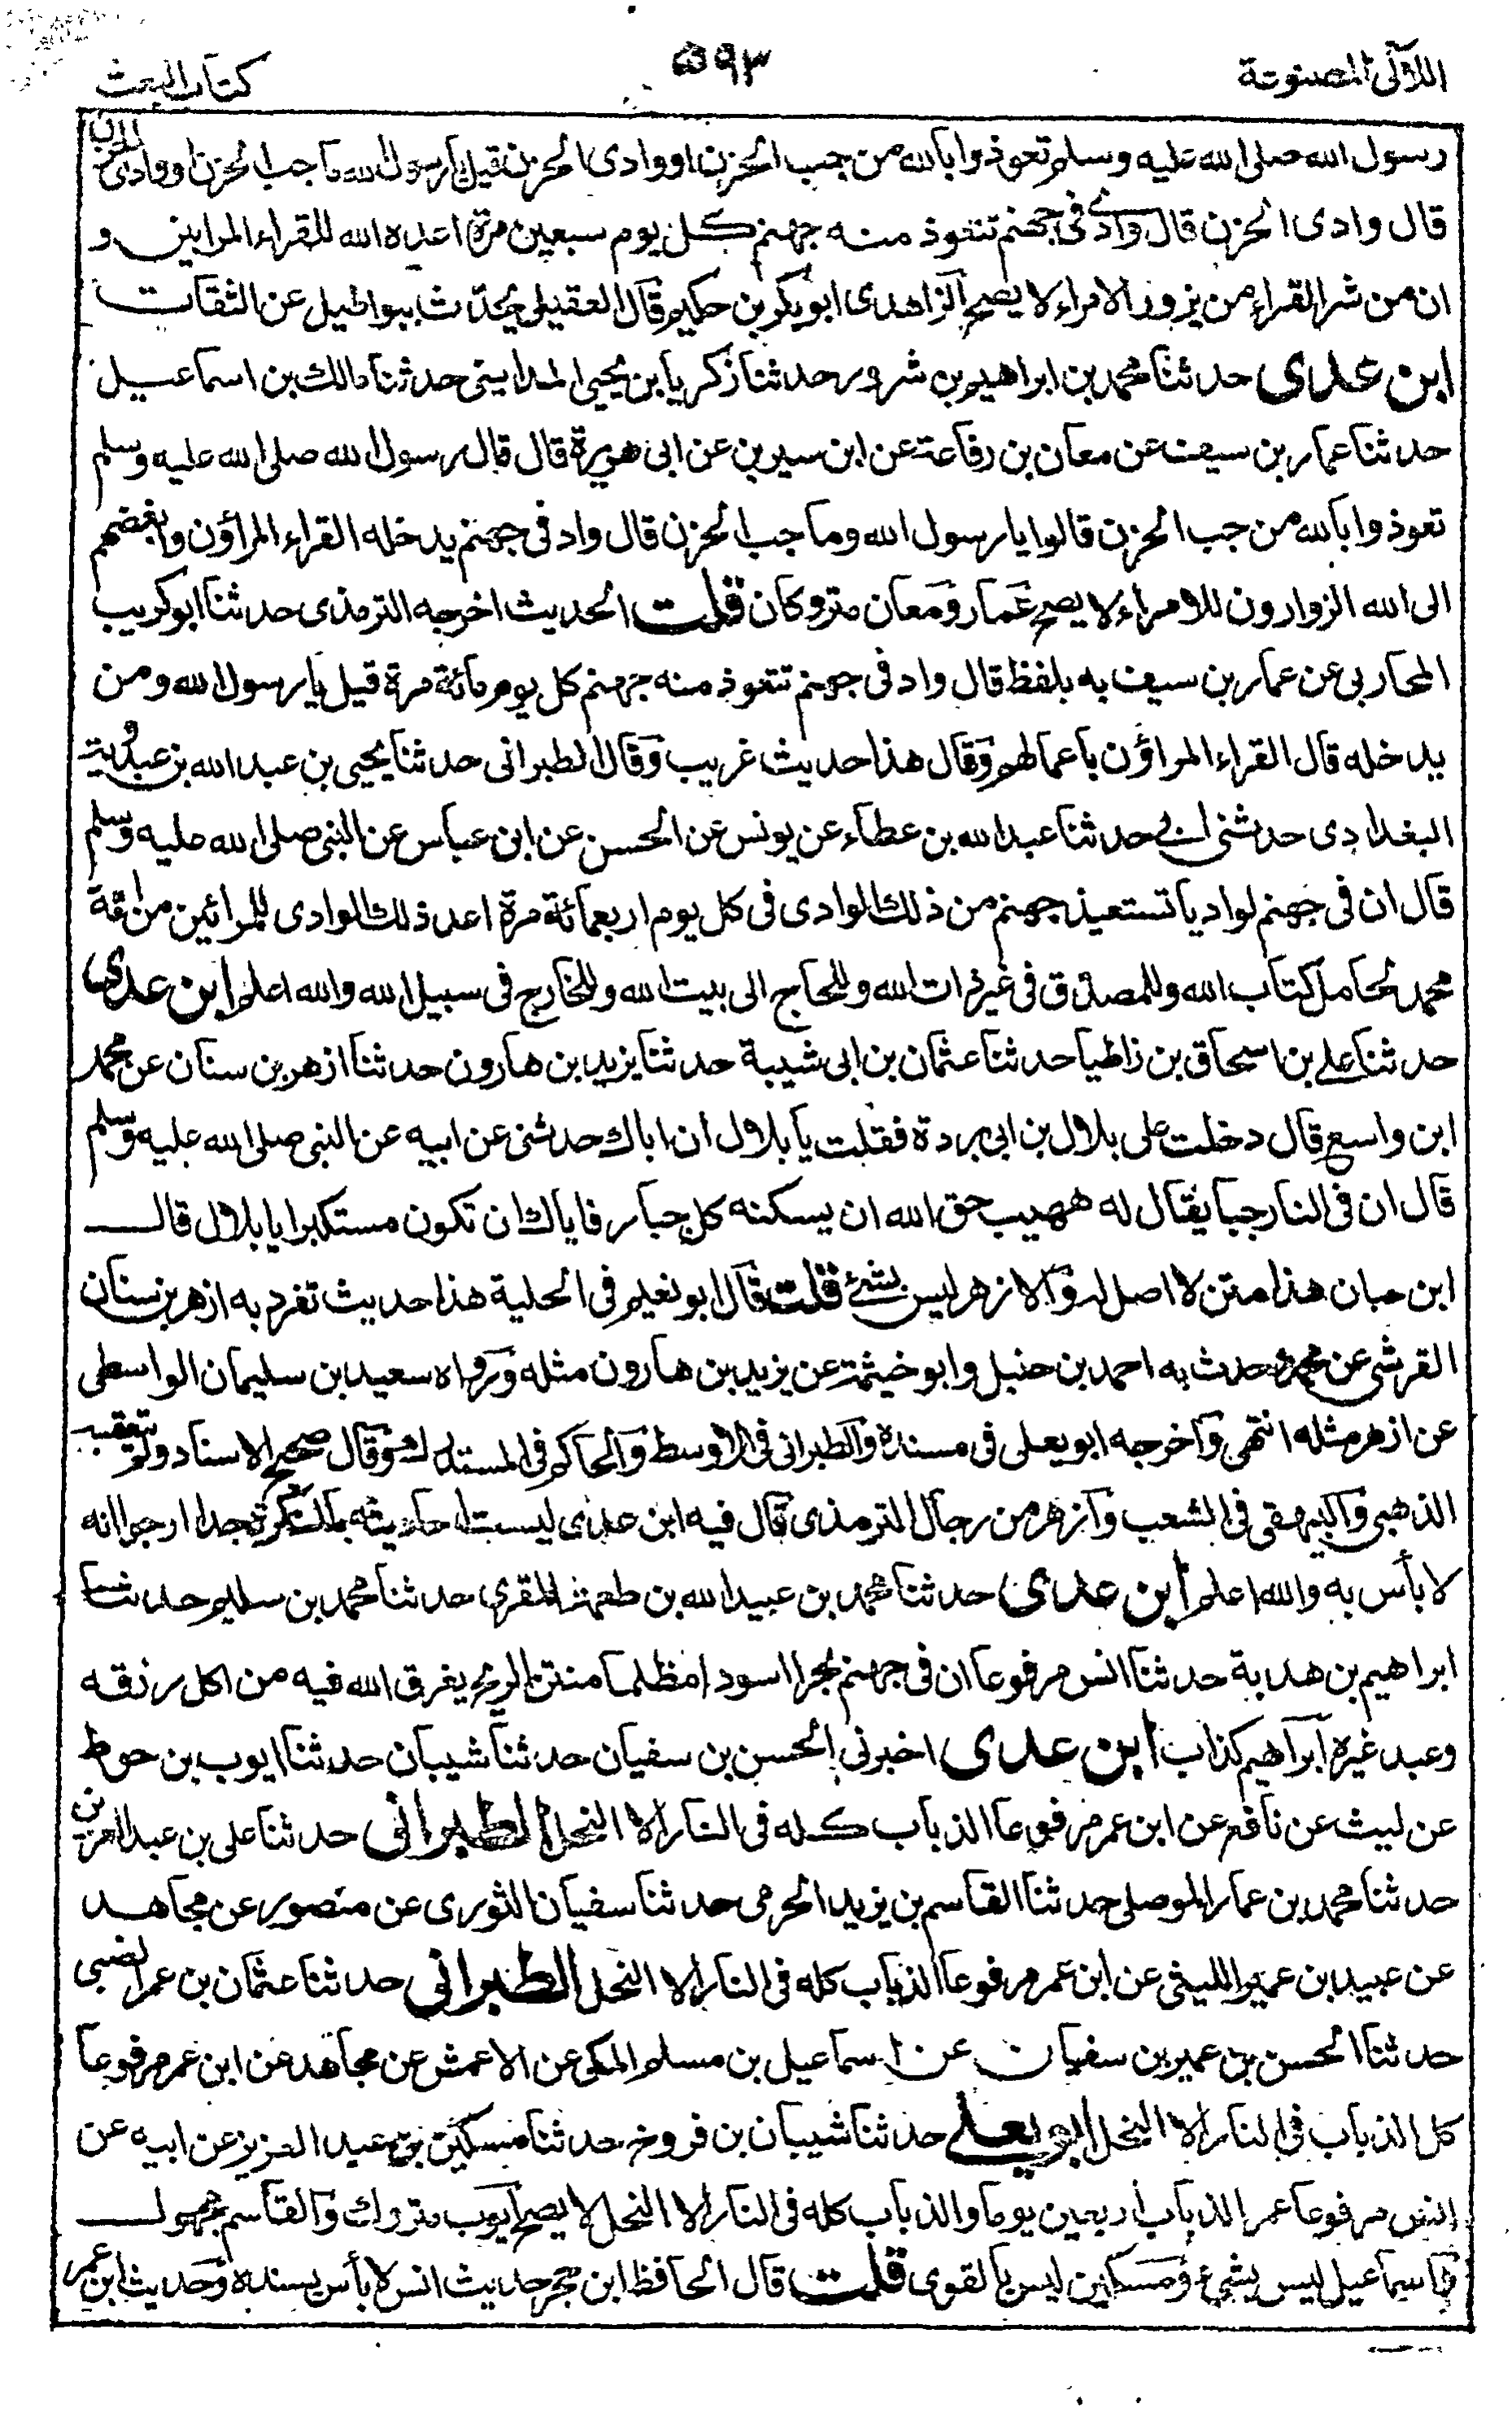 اللآلئ المصنوعة
٥٩٣
كتاب البعث
رسول الله صلى الله عليه وسلم تعوذوا بالله من جب الحزن او وادى الحزن قيل يا رسول الله ما جب الحزن او وادى الحزن
قال وادى الحزن قال واد فى جهنم تتعوذ منه جهنم كل يوم سبعين مرة اعده الله للقراء المرايين و
ان من شر القراء من يزور الامراء لا يصح الزاهدى ابو بكر بن حكيم قال العقيلى يحدث ببواطيل عن الثقات
ابن عدى حدثنا محمد بن ابراهيم بن شرور حدثنا زكريا بن يحيى المدايينى حدثنا مالك بن اسماعيل
حدثنا عمار بن سيف عن معان بن رفاعة عن ابن سيرين عن ابى هريرة قال قال رسول الله صلى الله عليه وسلم
تعوذوا بالله من جب الحزن قالوا يا رسول الله وما جب الحزن قال واد فى جهنم يدخله القراء المراؤن وابغضهم
الى الله الزوارون للامراء لا يصح عمار ومعان متروكان قلت الحديث اخرجه الترمذى حدثنا ابو كريب
المحاربى عن عمار بن سيف به بلفظ قال واد فى جهنم تتعوذ منه جهنم كل يوم مائة مرة قيل يا رسول الله ومن
يدخله قال القراء المراؤن باعمالهم وقال هذا حديث غريب وقال الطبرانى حدثنا يحيى بن عبد الله بن عبدويه
البغدادى حدثنى ابى حدثنا عبد الله بن عطاء عن يونس عن الحسن عن ابن عباس عن النبى صلى الله عليه وسلم
قال ان فى جهنم لواديا تستعيذ جهنم من ذلك الوادى فى كل يوم اربعمائة مرة اعد ذلك الوادى للمرائين من امة
محمد لحامل كتاب الله وللمصدق فى غير ذات الله وللحاج الى بيت الله وللخارج فى سبيل الله والله اعلم ابن عدى
حدثنا على بن اسحاق بن زاطيا حدثنا عثمان بن ابى شيبة حدثنا يزيد بن هارون حدثنا ازهر بن سنان عن محمد
ابن واسع قال دخلت على بلال بن ابى بردة فقلت يا بلال ان اباك حدثنى عن ابيه عن النبى صلى الله عليه وسلم
قال ان فى النار جبا يقال له ههيب حق الله ان يسكنه كل جبار فاياك ان تكون مستكبرا يا بلال قال
ابن حبان هذا متن لا اصل له والازهر ليس بشئ قلت قال ابو نعيم فى الحلية هذا حديث تفرد به ازهر بن سنان
القرشى عن محمد وحدث به احمد بن حنبل وابو خيثمة عن يزيد بن هارون مثله ورواه سعيد بن سليمان الواسطى
عن ازهر مثله انتهى واخرجه ابو يعلى فى مسنده والطبرانى فى الاوسط والحاكم فى المستدرك وقال صحيح الاسناد ولم يتعقبه
الذهبى والبيهقى فى الشعب وازهر من رجال الترمذى قال فيه ابن عدى ليست احاديثه بالمنكرة جدا ارجو انه
لا بأس به والله اعلم ابن عدى حدثنا محمد بن عبيد الله بن طعمة المقرى حدثنا محمد بن سليم حدثنا
ابراهيم بن هدبة حدثنا انس مرفوعا ان فى جهنم بحرا اسود مظلما منتن الريح يغرق الله فيه من اكل رزقه
وعبد غيره ابراهيم كذاب ابن عدى اخبرنى الحسن بن سفيان حدثنا شيبان حدثنا ايوب بن حوط
عن ليث عن نافع عن ابن عمر مرفوعا الذباب كله فى النار الا النحل الطبرانى حدثنا على بن عبد العزيز
حدثنا محمد بن عمار الموصلى حدثنا القاسم بن يزيد الحرمى حدثنا سفيان الثورى عن منصور عن مجاهد
عن عبيد بن عمير الليثى عن ابن عمر مرفوعا الذباب كله فى النار الا النحل الطبرانى حدثنا عثمان بن عمر الضبى
حدثنا الحسن بن عمير بن سفيان عن اسماعيل بن مسلم المكى عن الاعمش عن مجاهد عن ابن عمر مرفوعا
كل الذباب فى النار الا النحل ابو يعلى حدثنا شيبان بن فروخ حدثنا مسكين بن عبد العزيز عن ابيه عن
انس مرفوعا عمر الذباب اربعين يوما والذباب كله فى النار الا النحل لا يصح ايوب متروك والقاسم مجهول
واسماعيل ليس بشئ ومسكين ليس بالقوى قلت قال الحافظ ابن حجر حديث انس لا بأس بسنده وحديث ابن عمر